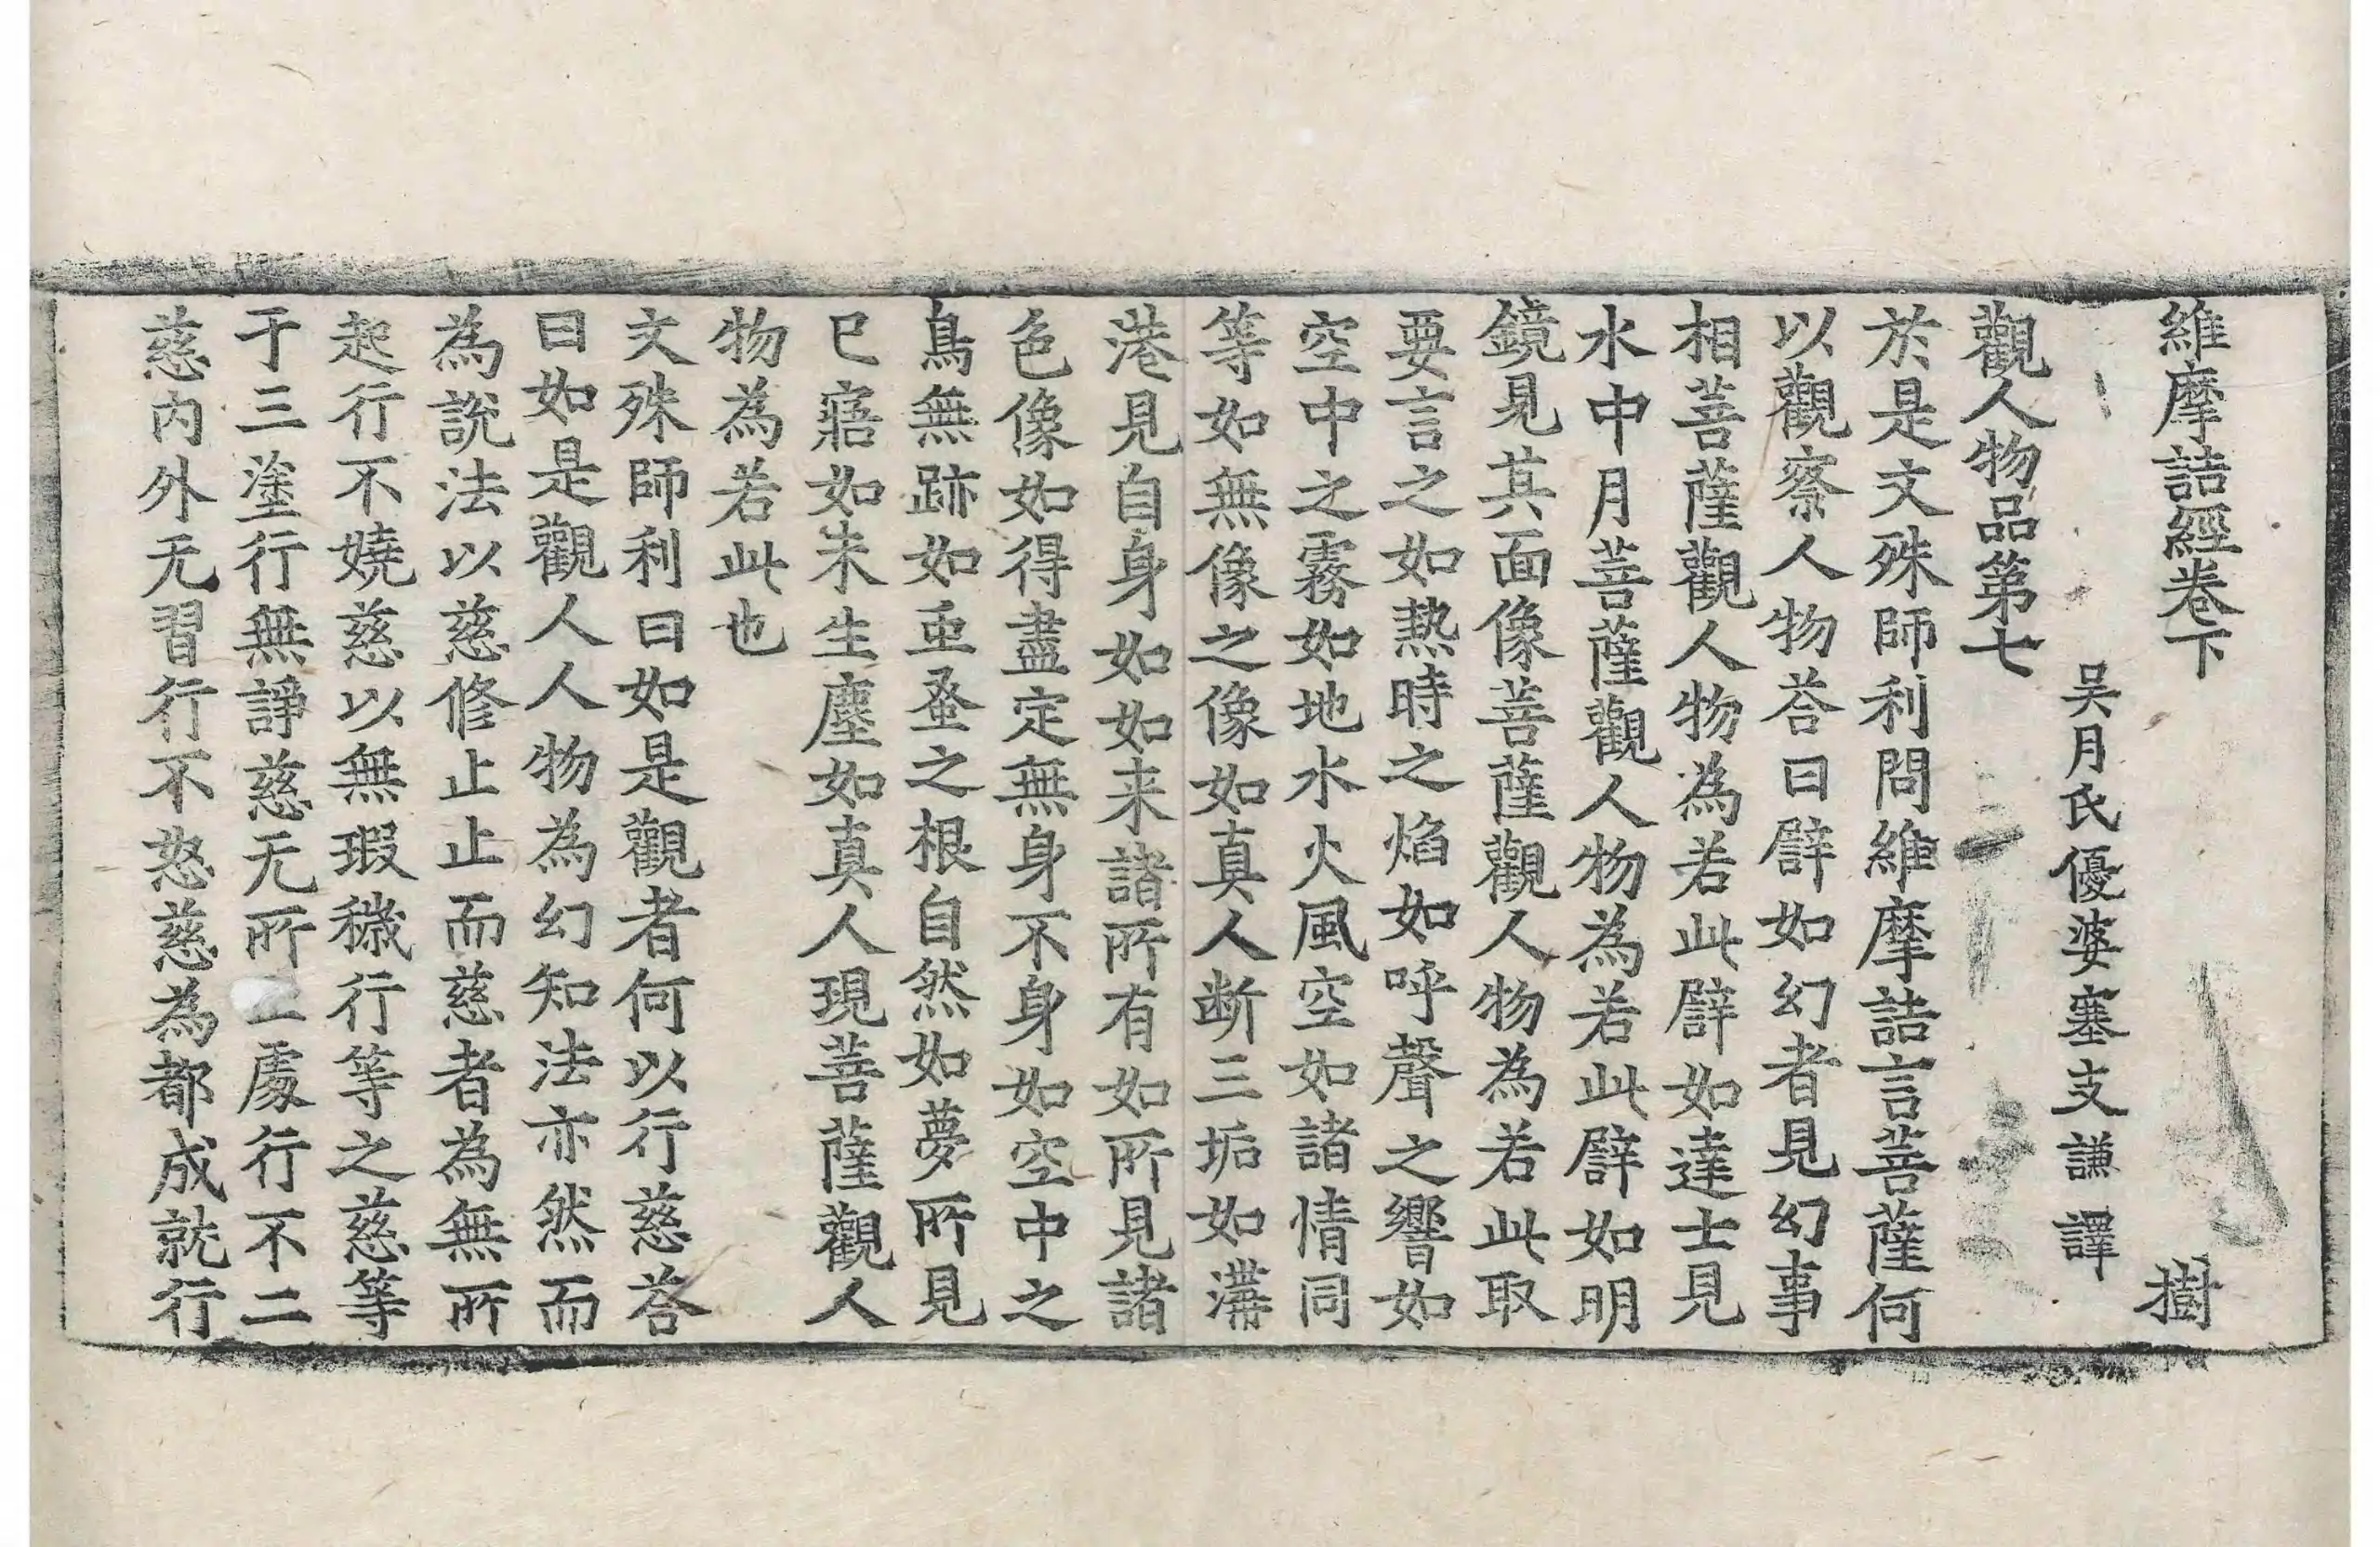 維摩詰經卷下 樹
吴月氏優婆塞支謙譯
觀人物品第七
於是文殊師利問維摩詰言菩薩何
以觀察人物荅曰譬如幻者見幻事
相菩薩觀人物為若此譬如達士見
水中月菩薩觀人物為若此譬如明
鏡見其面像菩薩觀人物為若此取
要言之如熱時之焰如呼聲之響如
空中之霧如地水火風空如諸情同
等如無像之像如真人断三垢如溝
港見自身如如来諸所有如所見諸
色像如得盡定無身不身如空中之
鳥無跡如䖝蚤之根自然如夢所見
已寤如未生塵如真人現菩薩觀人
物為若此也
文殊師利曰如是觀者何以行慈荅
曰如是觀人人物為幻知法亦然而
為說法以慈修止止而慈者為無所
起行不嬈慈以無瑕穢行等之慈等
于三塗行無諍慈无所處行不二
慈内外无習行不怒慈為都成就行